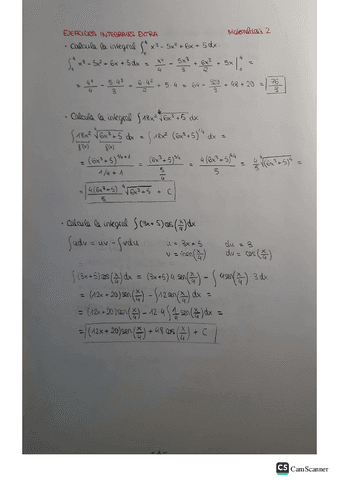 EJERCICIOS INTEGRALES EXTRA Matemáticas 2
· Calcula la integral ∫₀⁴ x³ - 5x² + 6x + 5 dx.
∫₀⁴ x³ - 5x² + 6x + 5 dx = x⁴/4 - 5x³/3 + 6x²/2 + 5x |₀⁴ =
= 4⁴/4 - 5·4³/3 + 6·4²/2 + 5·4 = 64 - 320/3 + 48 + 20 = 76/3
· Calcula la integral ∫18x² ⁴√(6x³+5) dx
∫18x² ⁴√(6x³+5) dx = ∫18x² (6x³+5)^(1/4) dx =
f'(x) f(x)
= (6x³+5)^(1/4+1) / (1/4+1) = (6x³+5)^(5/4) / (5/4) = 4(6x³+5)^(5/4) / 5 = 4/5 ⁴√(6x³+5)⁵ =
= 4(6x³+5)/5 ⁴√(6x³+5) + C
· Calcula la integral ∫(3x+5)cos(x/4)dx
∫udv = uv - ∫vdu u = 3x+5 du = 3
v = 4sen(x/4) dv = cos(x/4)
∫(3x+5)cos(x/4)dx = (3x+5)4sen(x/4) - ∫4sen(x/4) 3dx
= (12x+20)sen(x/4) - ∫12sen(x/4)dx =
= (12x+20)sen(x/4) - 12·4∫1/4 sen(x/4)dx =
= (12x+20)sen(x/4) + 48cos(x/4) + C
CS CamScanner